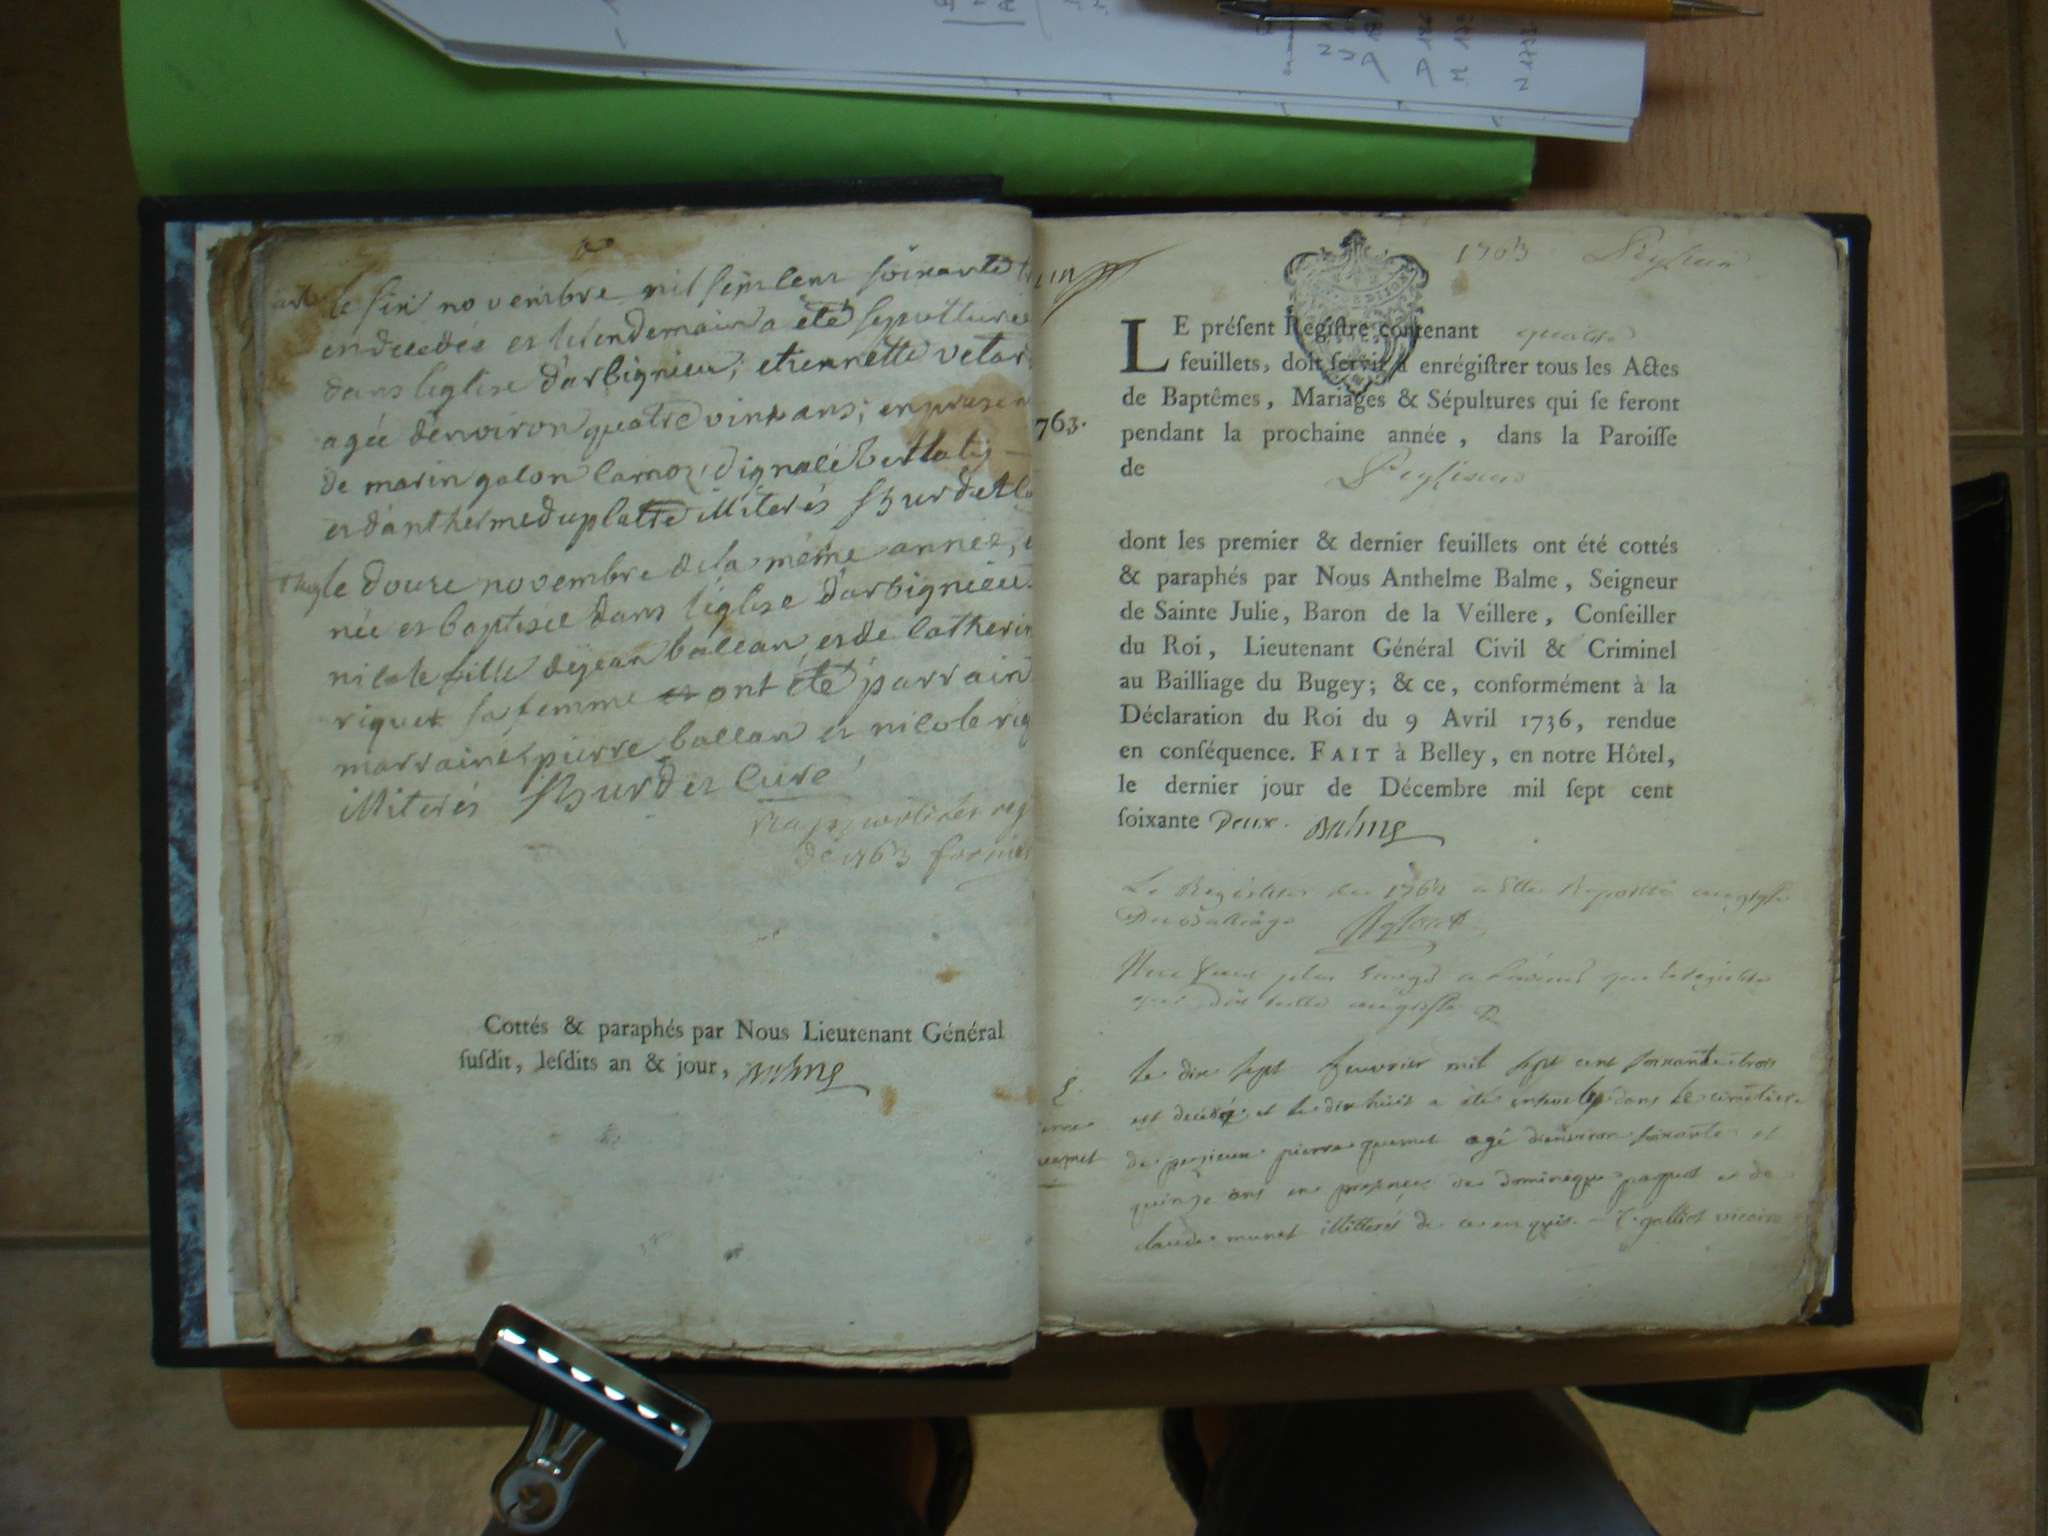 le six novembre mil sept cent soixante
en decedée et lelendemain a été sepulturée
dans leglise darbignieu; etiennette vetar
agée denviron quatre vint ans; en presen
de marin galon
et danthermeduplatre illiterés hurdet
le douze novembre de la même année,
née et baptisée dans léglise darbignieu
nicole fille dejean ballan, et de catherin
riquet sa femme ont été parrain
marraine, pierre ballan et nicole riq
illiterés hurdet curé
de 1763
Cottés & paraphés par Nous Lieutenant Général
ſuſdit, leſdits an & jour, Balme
1763 Peyzieu
LE préſent Regiſtre contenant quatre
feuillets, doit ſervir à enrégiſtrer tous les Actes
de Baptêmes, Mariages & Sépultures qui ſe feront
763.
pendant la prochaine année, dans la Paroiſſe
de Peyzieu
dont les premier & dernier feuillets ont été cottés
& paraphés par Nous Anthelme Balme, Seigneur
de Sainte Julie, Baron de la Veillere, Conſeiller
du Roi, Lieutenant Général Civil & Criminel
au Bailliage du Bugey; & ce, conformément à la
Déclaration du Roi du 9 Avril 1736, rendue
en conſéquence. FAIT à Belley, en notre Hôtel,
le dernier jour de Décembre mil ſept cent
ſoixante Deux. Balme
Le Registre de 1762 a Ette Reporté
Du Balliage
le dix sept feuvrier mil sept cent soixante trois
est decédé et le dix huit a été enseveli dans le cimetiere
de peyzieux pierre quemet agé denviron soixante et
quinze ans en presence de dominique paquet et de
claude munet illitterés de ce enquis. galliot vicaire